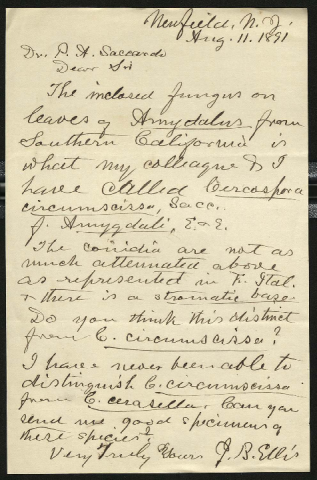 Newfield, N. J.
Aug. 11. 1891
Dr. P. A. Saccardo
Dear Sir
The inclosed fungus on
leaves of Amygdalus from
Southern California is
what my colleague & I
have called Cercospora
circumscissa, Sacc.
f. Amygdali, E & E.
The conidia are not as
much attenuated above
as represented in F. Ital.
& there is a stromatic base.
Do you think this distinct
from C. circumscissa?
I have never been able to
distinguish C. circumscissa
from C. cerasella. Can you
send me good specimens of
these species?
Very Truly Yours J. B. Ellis